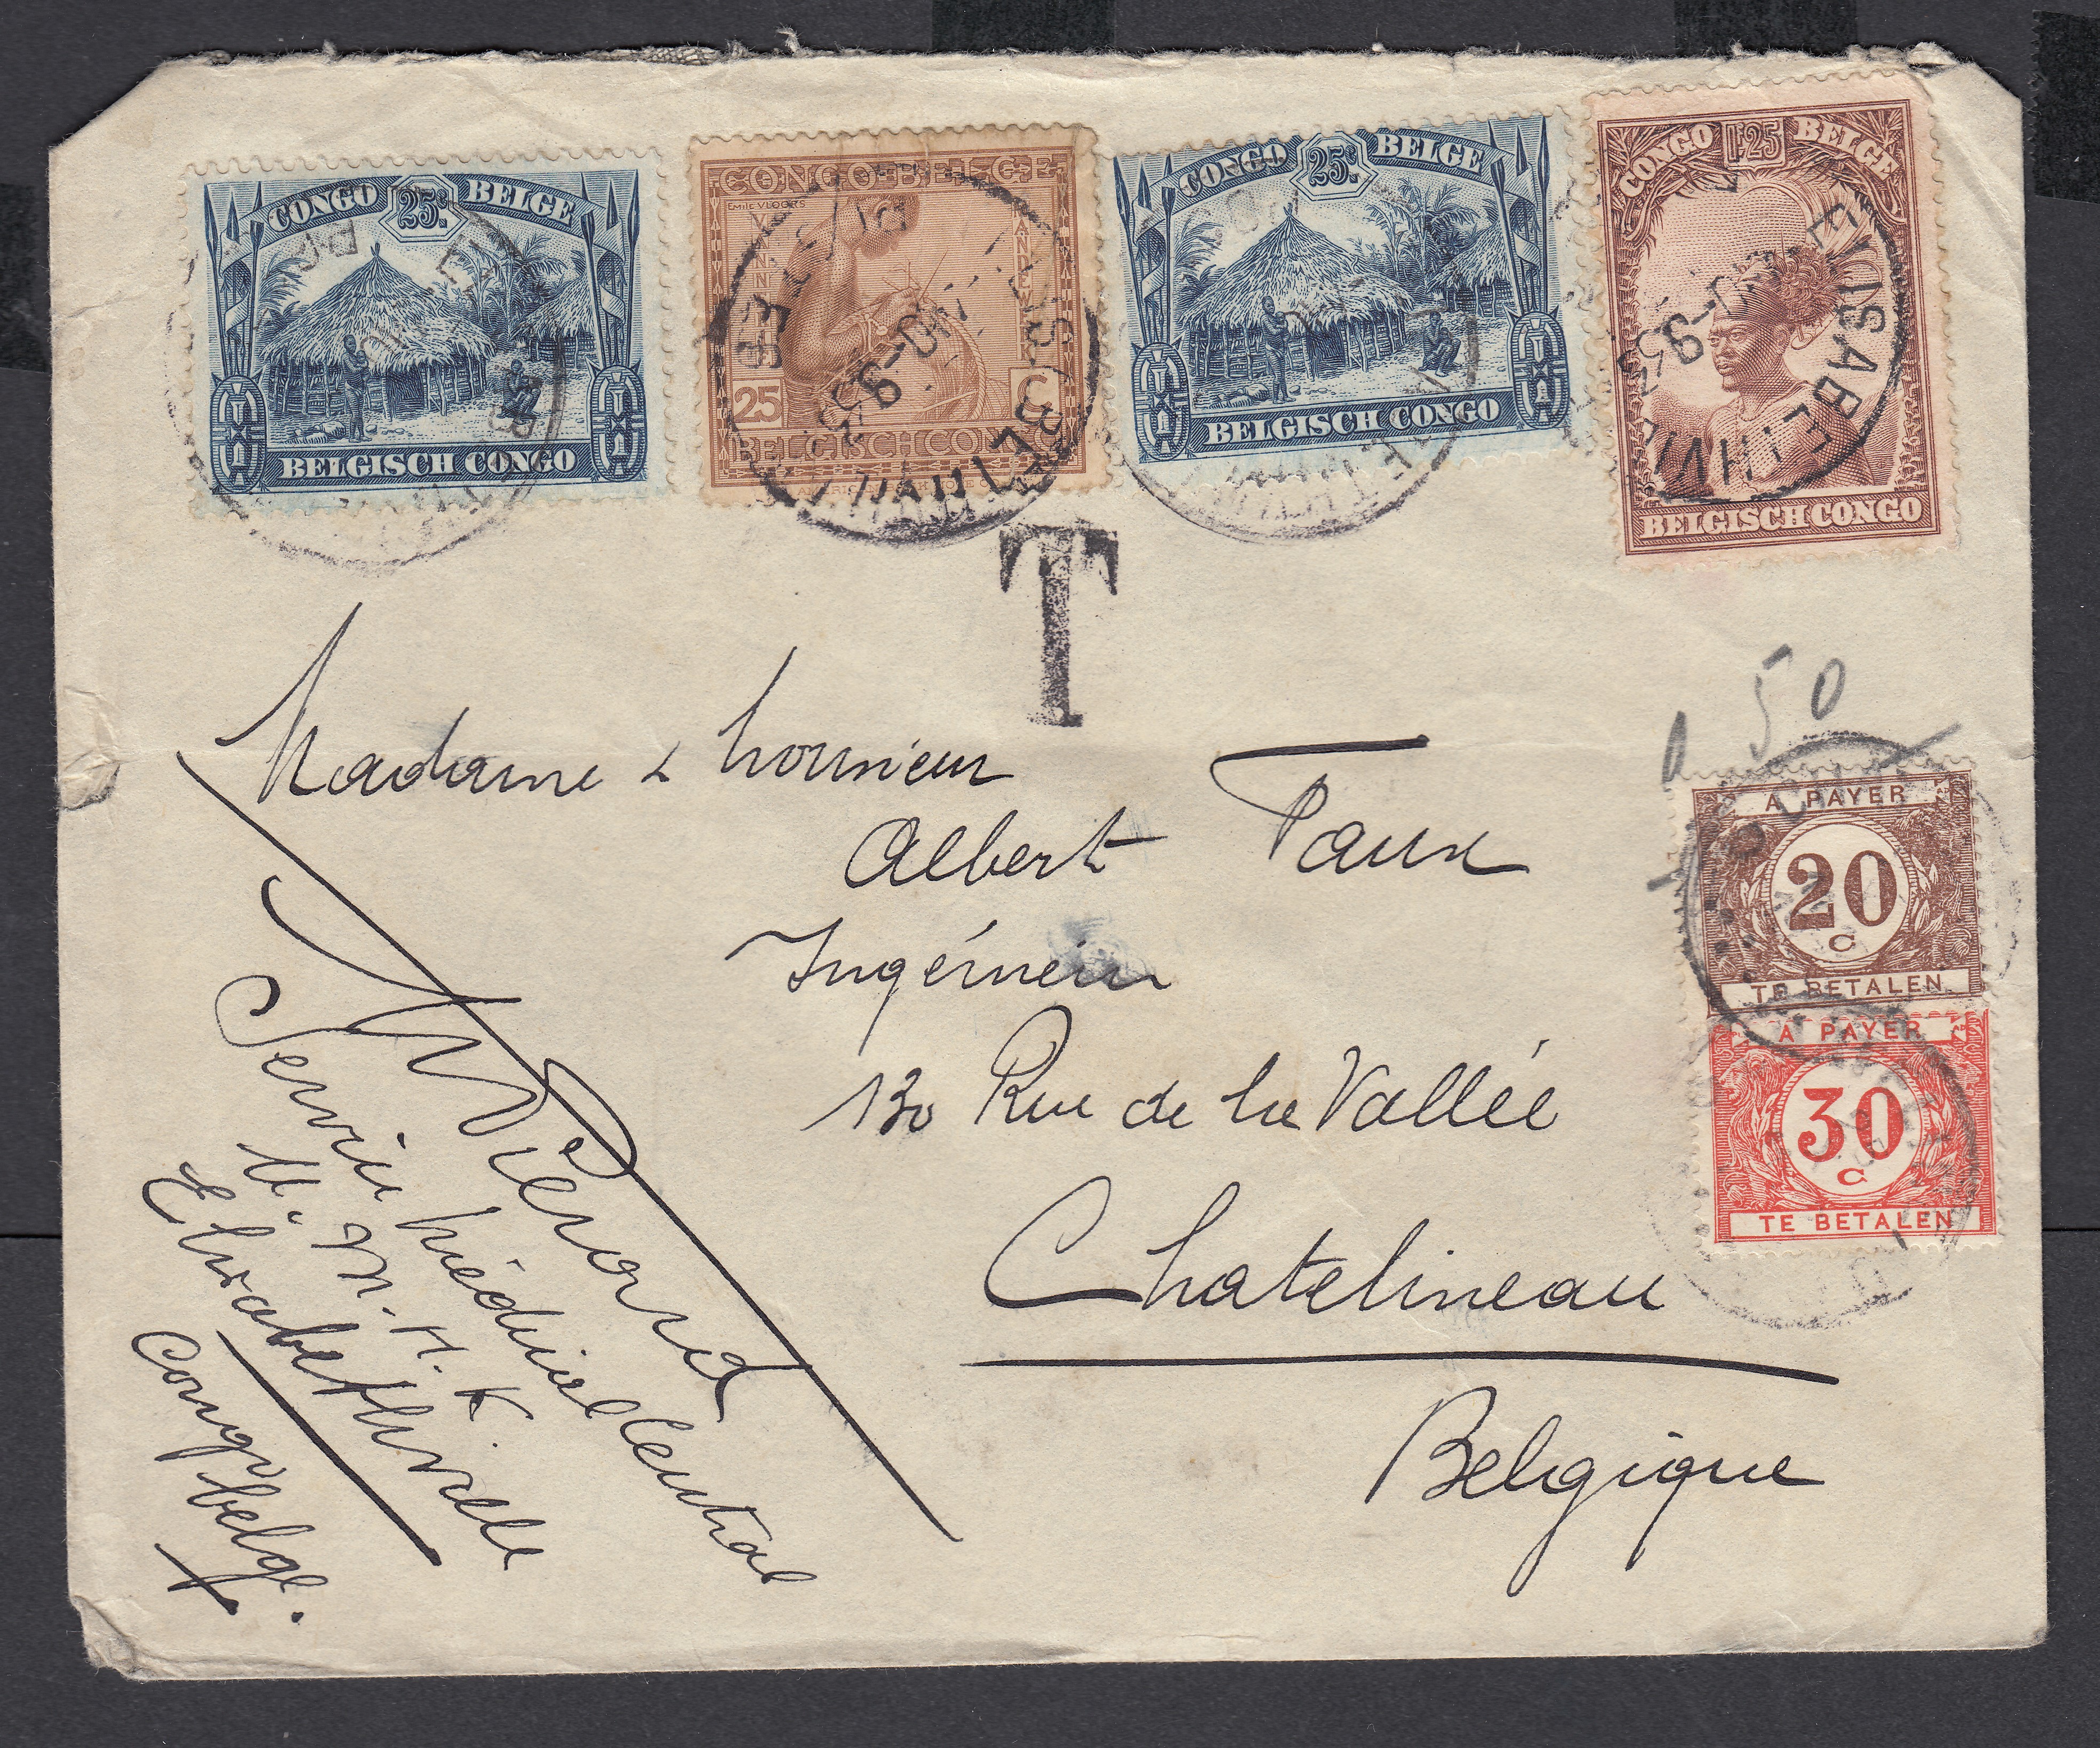 CONGO 25c BELGE
BELGISCH CONGO
CONGO BELGE
EMILE VLOORS
25 C
BELGISCH CONGO
CONGO 25c BELGE
BELGISCH CONGO
CONGO 1F25 BELGE
BELGISCH CONGO
ELISABETHVILLE
ELISABETHVILLE
T
0 50
A PAYER
20
C
TE BETALEN
A PAYER
30
C
TE BETALEN
Madame & Monsieur
Albert Taux
Ingénieur
130 Rue de la Vallée
Chatelineau
Belgique
Service Médical Central
U. M. H. K.
Elisabethville
Congo belge.